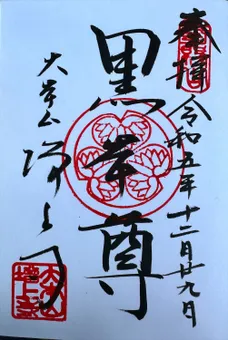 奉拝
令和五年十二月廿九日
黒本尊
大本山増上寺